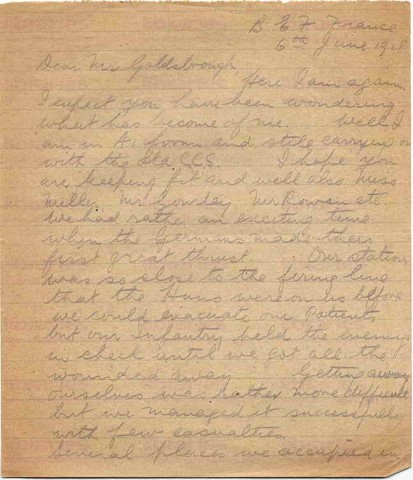 B E F France
6th June 1918
Dear Mr Goldsbrough,
Here I am again
I expect you have been wondering
what has become of me. Well I
am in A1 form and still carrying on
with the old CCS. I hope you
are keeping fit and well also Miss
Miller, Mr Gourlay, Mr Rowan etc
We had rather an exciting time
when the Germans made their
first great thrust. Our station
was so close to the firing line
that the Huns were on us before
we could evacuate our Patients
but our Infantry held the enemy
in check until we got all the
wounded away. Getting away
ourselves was rather more difficult
but we managed it successfully
with few casualties.
Several places we occupied in